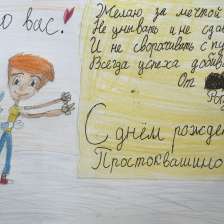 о вас!
Желаю за мечтой
Не унывать и не сдав
И не сворачивать с пу
Всегда успеха добив
От
Рог
С днём рожде
Простоквашино